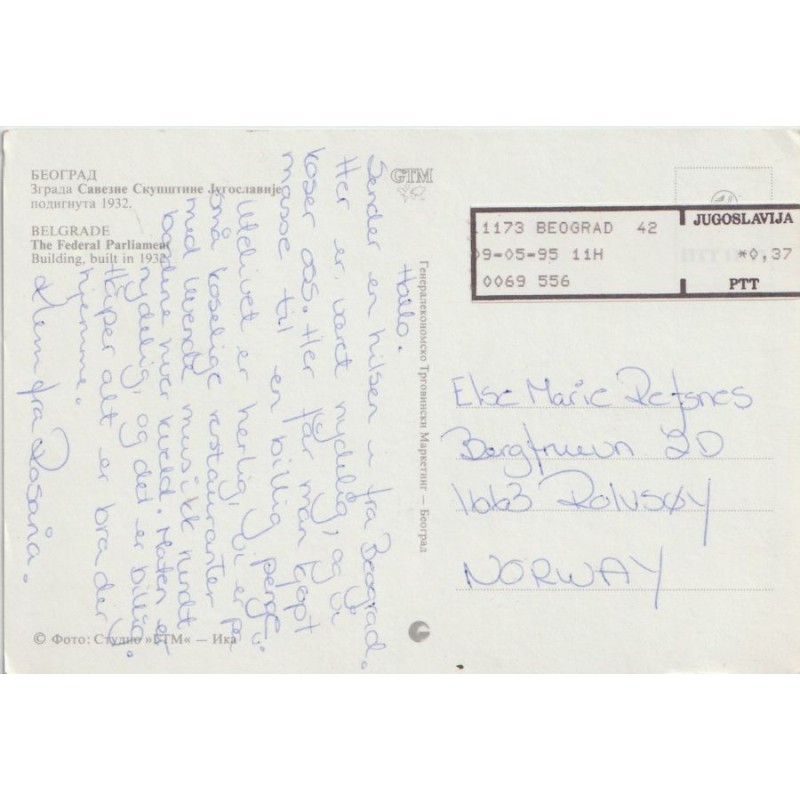 БЕОГРАД
Зграда Савезне Скупштине Југославије
подигнута 1932.
BELGRADE
The Federal Parliament
Building, built in 1932.
GTM
Hallo.
Sender en hilsen i fra Beograd.
Her er været nydelig, og vi
koser oss. Her får man kjøpt
masse til en billig penge.
Utelivet er herlig, vi er på
små koselige restauranter
med levende musikk rundt
bordene hver kveld. Maten er
nydelig, og det er billig.
Håper alt er bra der
hjemme.
Klem fra Rosaria.
© Фото: Студио »ГТМ« — Ика
Генералекономско Трговински Маркетинг — Београд
11173 BEOGRAD 42
09-05-95 11H
0069 556
JUGOSLAVIJA
*0,37
PTT
Else Marie Refsnes
Bergfruevn 2D
1663 Rolvsøy
NORWAY